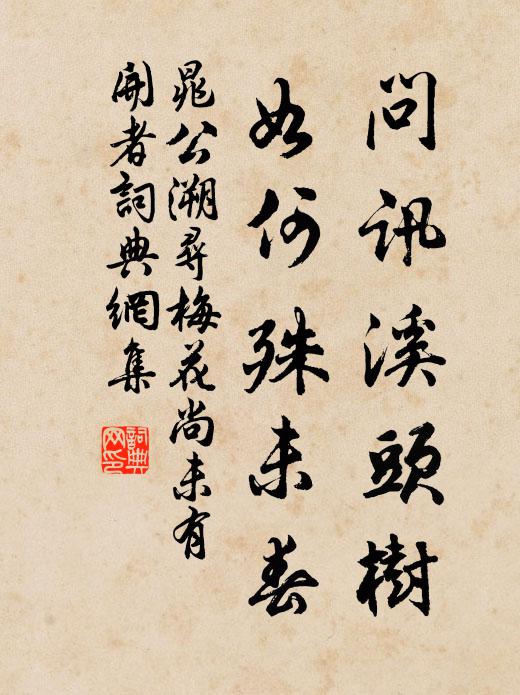 問訊溪頭樹
如何殊未春
晁公溯尋梅花尚未有
開者詞典網集
詞典
网印